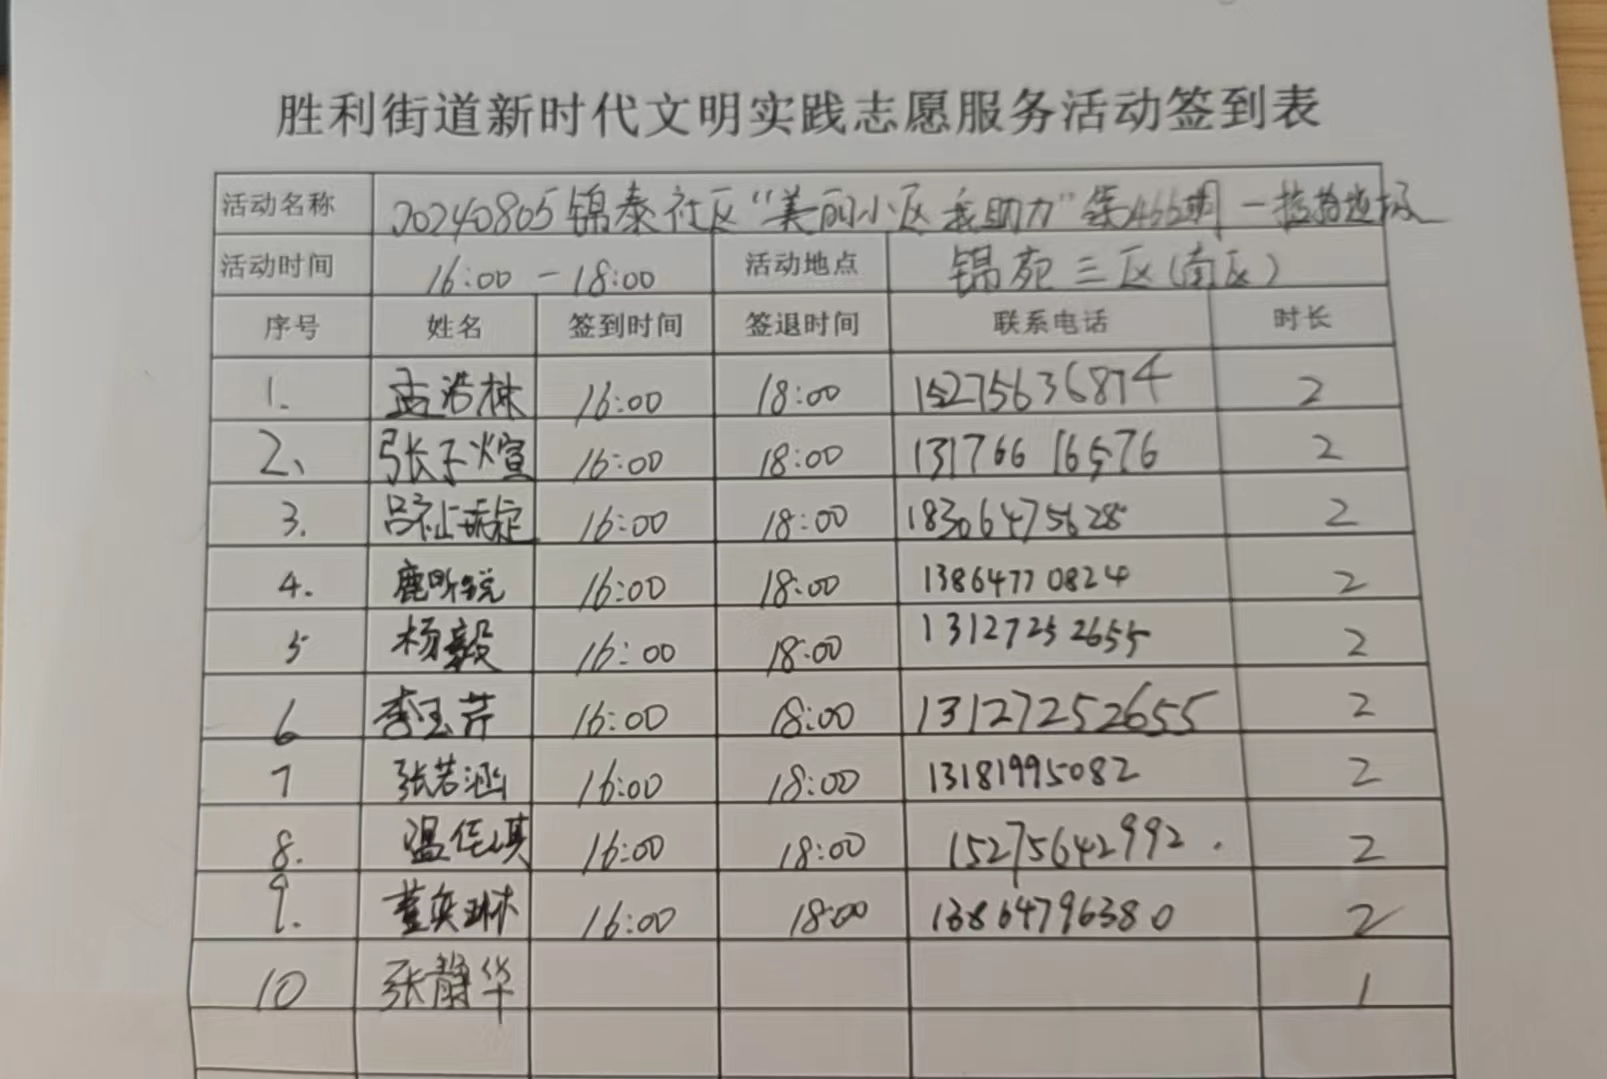 胜利街道新时代文明实践志愿服务活动签到表
活动名称 20240805锦泰社区“美丽小区 我助力”第466期 一捡拾垃圾
活动时间 16:00 - 18:00 活动地点 锦苑三区(南区)
序号 姓名 签到时间 签退时间 联系电话 时长
1. 孟浩林 16:00 18:00 15275636874 2
2、 张子煊 16:00 18:00 13176616576 2
3. 吕祉 16:00 18:00 18306475628 2
4. 鹿昕锐 16:00 18:00 13864770824 2
5 杨毅 16:00 18:00 13127252655 2
6 李玉芹 16:00 18:00 13127252655 2
7 张若涵 16:00 18:00 13181995082 2
8. 温佳琪 16:00 18:00 15275642992. 2
9. 董奕琳 16:00 18:00 13864796380 2
10 张静华 1